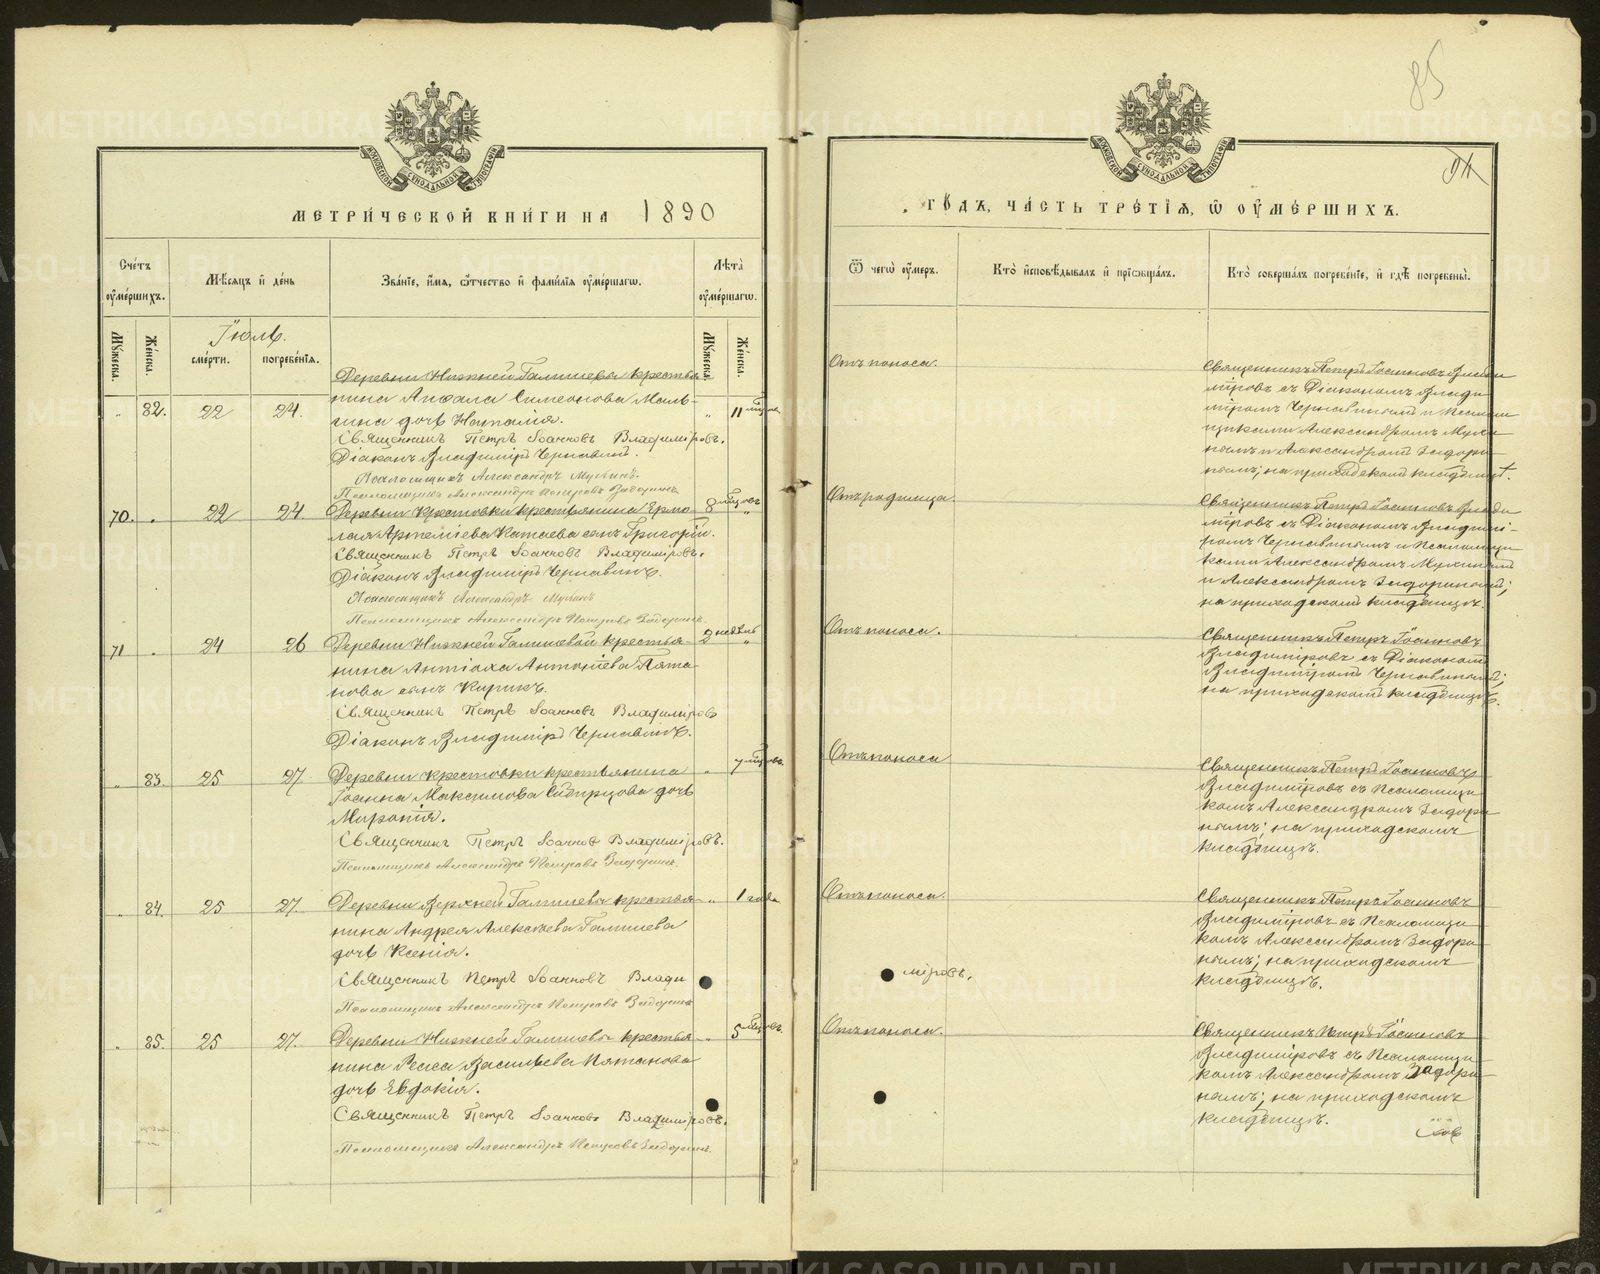 85
94
МЕТРИ́ЧЕСКОЙ КНИ́ГИ НА 1890
ГО́ДЪ, ЧА́СТЬ ТРЕ́ТІѦ, Ѿ ОУМЕ́РШИХЪ.
Сче́тъ оуме́ршихъ.
Мѣ́сяцъ и де́нь
Зва́нїе, и́мѧ, ѻ́тчество и фами́лїѧ оуме́ршагѡ.
Лѣ́та оуме́ршагѡ.
Ѿ чегѡ̀ оу́меръ.
Кто̀ исповѣ́дывалъ и прїѡбща́лъ.
Кто̀ соверша́лъ погребе́нїе, и гдѣ̀ погребены̀.
Му́жеска.
Же́нска.
Іюль.
сме́рти.
погребе́нїѧ.
Му́жеска.
Же́нска.
82. 22 24.
Деревни Нижней Галишевы крестья-
нина Анфала Симеонова Маль-
гина дочь Наталія.
11 мцовъ
Священникъ Петръ Іоанновъ Владиміровъ.
Діаконъ Владиміръ Чернавинъ.
Псаломщикъ Александръ Мухинъ.
Псаломщикъ Александръ Петровъ Задоринъ.
Отъ поноса.
Священникъ Петръ Іоанновъ Влади
міровъ съ Діакономъ Влади
міромъ Чернавинымъ и Псалом
щиками Александромъ Мухи
нымъ и Александромъ Задори-
нымъ; на приходскомъ кладбищѣ.
70. 22 24
Деревни Крестовки крестьянина Ермо-
лая Артеміева Катаева сынъ Григорій.
8 мцовъ
Священникъ Петръ Іоанновъ Владиміровъ.
Діаконъ Владиміръ Чернавинъ.
Псаломщикъ Александръ Мухинъ
Псаломщикъ Александръ Петровъ Задоринъ.
Отъ родимца.
Священникъ Петръ Іоанновъ Влади
міровъ съ Діакономъ Владимі-
ромъ Чернавинымъ и Псаломщи
ками Александромъ Мухинымъ
и Александромъ Задоринымъ;
на приходскомъ кладбищѣ.
71 24 26
Деревни Нижней Галишевой крестья-
нина Антіоха Антоніева Пята-
нова сынъ Кирикъ.
2 недѣль
Священникъ Петръ Іоанновъ Владиміровъ
Діаконъ Владиміръ Чернавинъ.
Отъ поноса.
Священникъ Петръ Іоанновъ
Владиміровъ съ Діакономъ
Владиміромъ Чернавинымъ;
на приходскомъ кладбищѣ.
83. 25 27.
Деревни Крестовки крестьянина
Іоанна Максимова Сибирцова дочь
Миропія.
7 мцовъ.
Священникъ Петръ Іоанновъ Владиміровъ.
Псаломщикъ Александръ Петровъ Задоринъ.
Отъ поноса
Священникъ Петръ Іоанновъ
Владиміровъ съ Псаломщи
комъ Александромъ Задори
нымъ; на приходскомъ
кладбищѣ.
84. 25 27.
Деревни Верхней Галишевы крестья-
нина Андрея Алексѣева Галишева
дочь Ксенія.
1 года
Священникъ Петръ Іоанновъ Влади
міровъ.
Псаломщикъ Александръ Петровъ Задоринъ
Отъ поноса.
Священникъ Петръ Іоанновъ
Владиміровъ съ Псаломщи
комъ Александромъ Задори
нымъ; на приходскомъ
кладбищѣ.
85. 25 27.
Деревни Нижней Галишевы крестья-
нина Васильева Пятанова
дочь Евдокія.
5 мцовъ.
Священникъ Петръ Іоанновъ Владиміровъ.
Псаломщикъ Александръ Петровъ Задоринъ.
Отъ поноса.
Священникъ Петръ Іоанновъ
Владиміровъ съ Псаломщи
комъ Александромъ Задори
нымъ; на приходскомъ
кладбищѣ.
METRIKI.GASO-URAL.RU